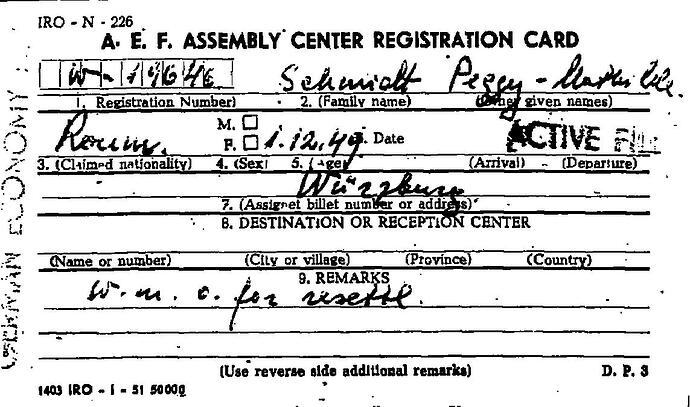 IRO - N - 226
A. E. F. ASSEMBLY CENTER REGISTRATION CARD
Schmidt Peggy -
1. Registration Number) 2. (Family name) (Other given names)
M. ☐
Roum. F. ☐ 1.12.49. Date ACTIVE
3. (Claimed nationality) 4. (Sex) 5. (Age) (Arrival) (Departure)
Würzburg
7. (Assignet billet number or address)
8. DESTINATION OR RECEPTION CENTER
(Name or number) (City or village) (Province) (Country)
9. REMARKS
w. m. o. for resettl.
(Use reverse side additional remarks) D. P. 3
1403 IRO - I - 51 5000g
GERMAN ECONOMY